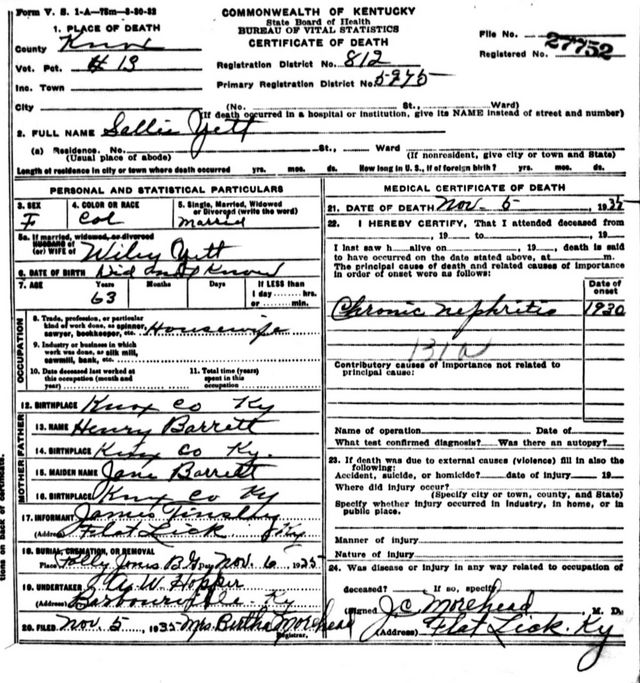 Form V. S. 1-A—75m—8-30-32
COMMONWEALTH OF KENTUCKY
State Board of Health
BUREAU OF VITAL STATISTICS
CERTIFICATE OF DEATH
1. PLACE OF DEATH
County Knox
Vot. Pct. #13
Inc. Town
City
Registration District No. 812
Primary Registration District No. 5275
File No. 27752
Registered No.
(No. St., Ward)
(If death occurred in a hospital or institution, give its NAME instead of street and number)
2. FULL NAME Sallie Yett
(a) Residence. No. St., Ward
(Usual place of abode) (If nonresident, give city or town and State)
Length of residence in city or town where death occurred yrs. mos. ds. How long in U. S., if of foreign birth? yrs. mos. ds.
PERSONAL AND STATISTICAL PARTICULARS
3. SEX F
4. COLOR OR RACE Col
5. Single, Married, Widowed or Divorced (write the word) Married
5a. If married, widowed, or divorced
HUSBAND of (or) WIFE of Wiley Yett
6. DATE OF BIRTH Did not Know
7. AGE Years Months Days If LESS than
63 1 day hrs.
or min.
OCCUPATION
8. Trade, profession, or particular kind of work done, as spinner, sawyer, bookkeeper, etc. Housewife
9. Industry or business in which work was done, as silk mill, sawmill, bank, etc.
10. Date deceased last worked at this occupation (month and year)
11. Total time (years) spent in this occupation
12. BIRTHPLACE Knox Co Ky
FATHER
13. NAME Henry Barrett
14. BIRTHPLACE Knox Co Ky.
MOTHER
15. MAIDEN NAME Jane Barrett
16. BIRTHPLACE Knox Co Ky
17. INFORMANT James Tinsley
(Address) Flat Lick Ky
18. BURIAL, CREMATION, OR REMOVAL
Place Polly Jones B.G. Date Nov. 6, 1935
19. UNDERTAKER W. Hopper
(Address) Barbourville Ky
20. FILED Nov. 5, 1935 Mrs. Bertha Morehead
Registrar.
MEDICAL CERTIFICATE OF DEATH
21. DATE OF DEATH Nov. 5, 1935
22. I HEREBY CERTIFY, That I attended deceased from
, 19 to , 19
I last saw h alive on , 19 , death is said
to have occurred on the date stated above, at m.
The principal cause of death and related causes of importance
in order of onset were as follows:
Date of onset
Chronic nephritis 1930
131a
Contributory causes of importance not related to
principal cause:
Name of operation Date of
What test confirmed diagnosis? Was there an autopsy?
23. If death was due to external causes (violence) fill in also the
following:
Accident, suicide, or homicide? date of injury , 19
Where did injury occur?
(Specify city or town, county, and State)
Specify whether injury occurred in industry, in home, or in
public place.
Manner of injury
Nature of injury
24. Was disease or injury in any way related to occupation of
deceased? If so, specify
(Signed) J.C. Morehead M. D.
(Address) Flat Lick. Ky
tions on back of certificate.